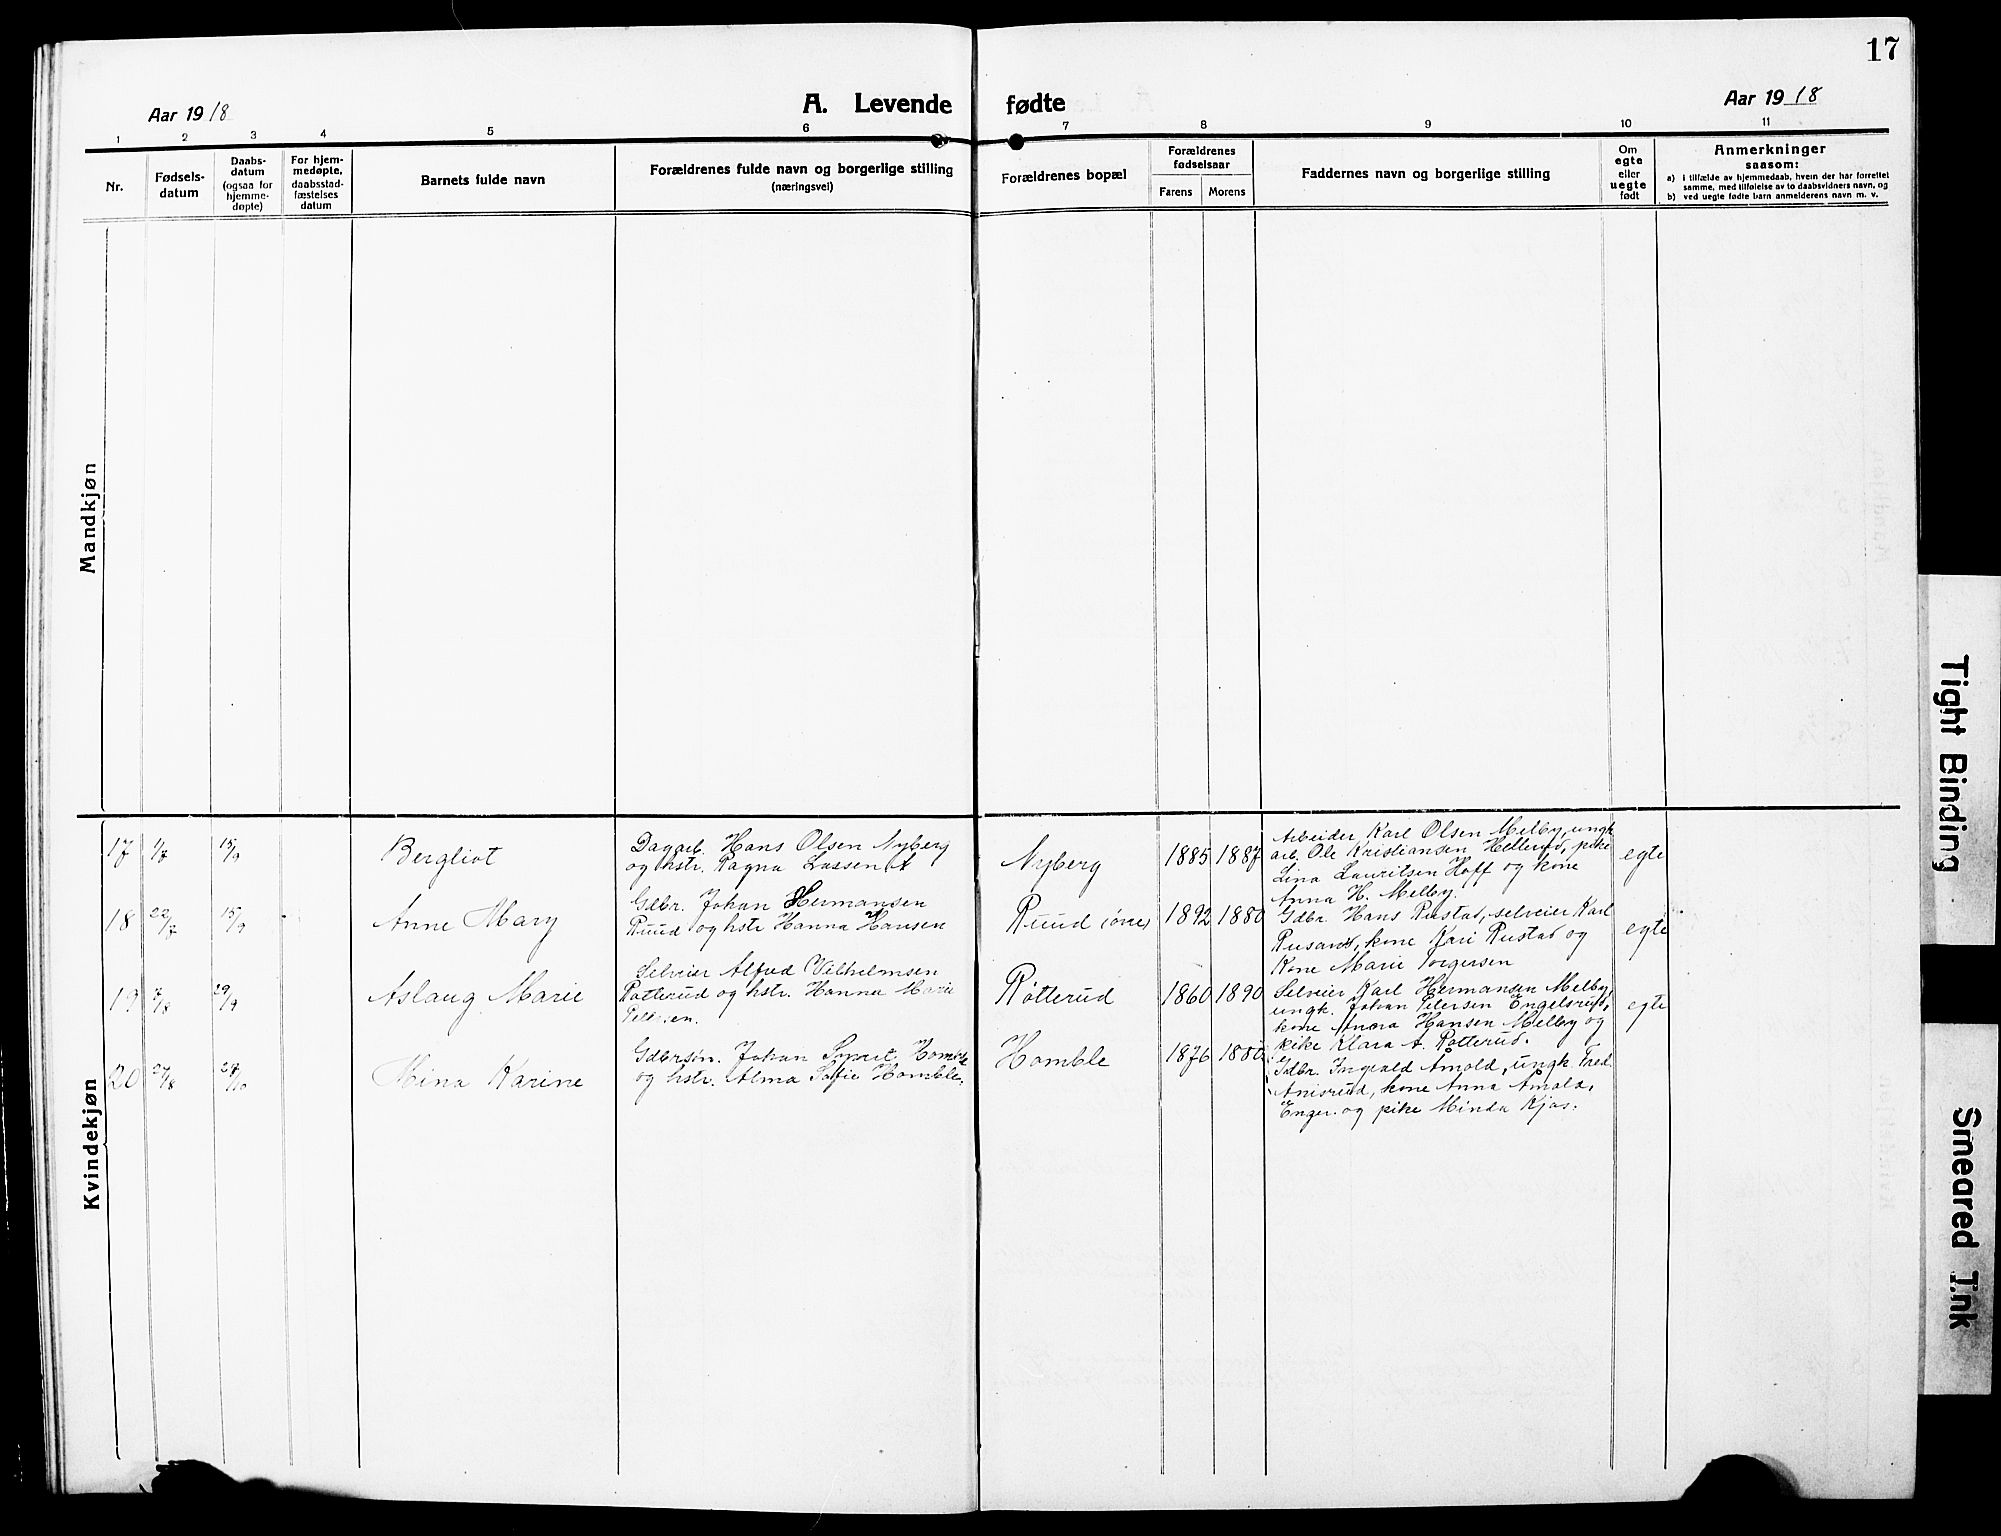 17
Aar 1918
A. Levende
fødte
Aar 1918
1 2 3 4 5 6 7 8 9 10 11
Nr.
Fødsels-
datum
Daabs-
datum
(ogsaa for
hjemme-
døpte)
For hjem-
medøpte,
daabsstad-
fæstelses
datum
Barnets fulde navn
Forældrenes fulde navn og borgerlige stilling
(næringsvei)
Forældrenes bopæl
Forældrenes
fødselsaar
Farens Morens
Faddernes navn og borgerlige stilling
Om
egte
eller
uegte
født
Anmerkninger
saasom:
a) i tilfælde av hjemmedaab, hvem der har forrettet
samme, med tilføielse av to daabsvidners navn, og
b) ved uegte fødte barn anmelderens navn m. v.
Mandkjøn
Kvindekjøn
17 1/7 15/9
Bergliot
Dagarb. Hans Olsen Nyberg
og hstr. Ragna Lassen
Nyberg
1885 1887
Arbeider Karl Olsen Melby, ungk.
arb. Ole Kristiansen Hellerud, pike
Lina Lauritsen Hoff og kone
Anna H. Melby.
egte
18 22/7 15/9
Anne Mary
Gdbr. Johan Hermansen
Ruud og hstr Hanna Hansen
Ruud
1892 1880
Gdbr. Hans Rustad, selveier Karl
kone Kari Rustad og
Kone Marie Torgersen
egte
19 7/8 29/9
Aslaug Marie
Selveier Alfred Vilhelmsen
Røtterud og hstr. Hanna Marie
Røtterud
1860 1890
Selveier Karl Hermansen Melby,
ungk. Johan Petersen Engelsrud,
kone Anna Hansen Melby og
pike Klara A. Røtterud.
egte
20 27/8 27/10
Mina Karine
Gdbrsøn. Johan Homble
og hstr. Alma Sofie Homble.
Homble
1876 1880
Gdbr. Ingvald Arnold, ungk. Fred.
kone Anna
Enger. og pike Minda Kjos.
Tight Binding
Smeared Ink